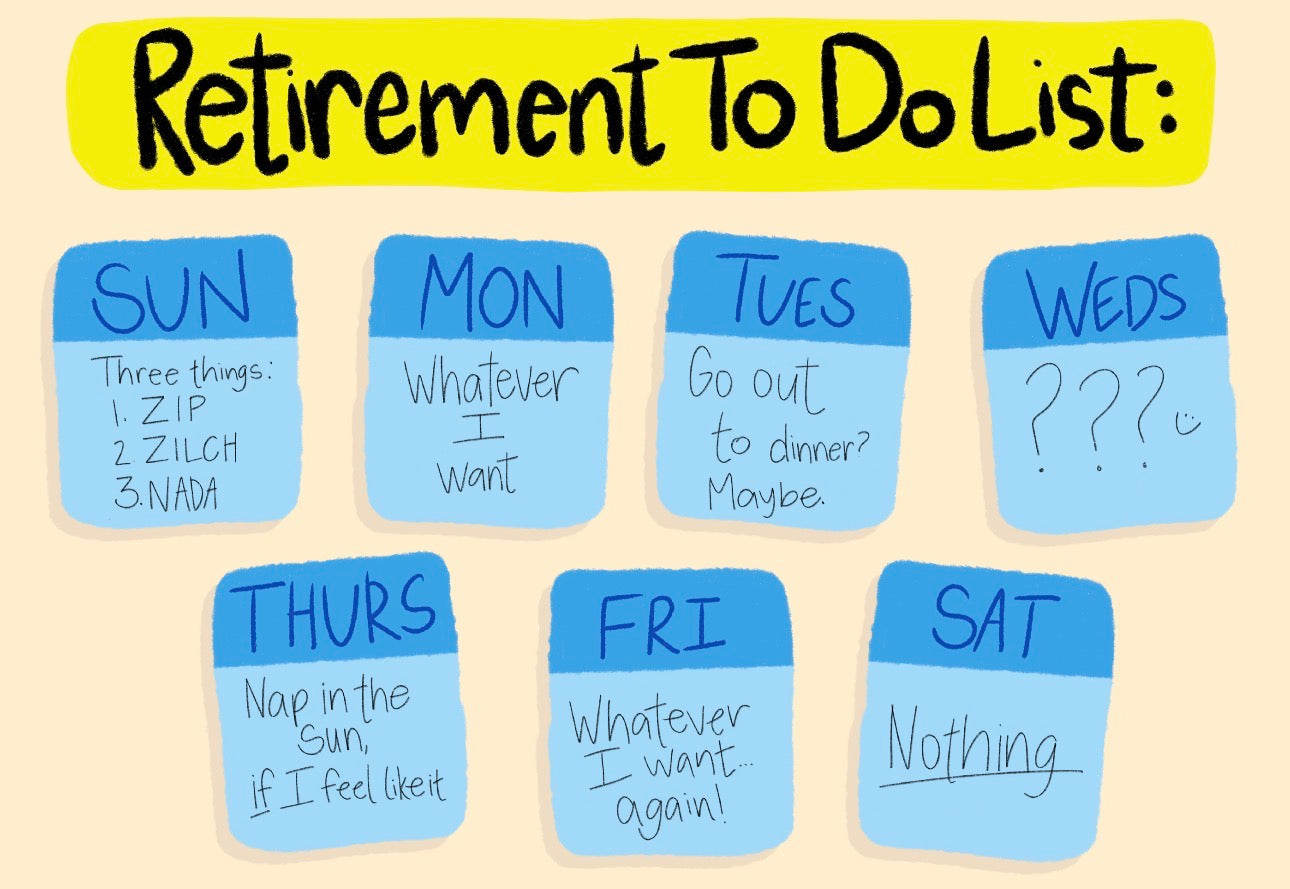 Retirement To Do List:
SUN
Three things:
1. ZIP
2. ZILCH
3. NADA
MON
Whatever
I
want
TUES
Go out
to dinner?
Maybe.
WEDS
???
THURS
Nap in the
Sun,
if I feel like it
FRI
Whatever
I want...
again!
SAT
Nothing